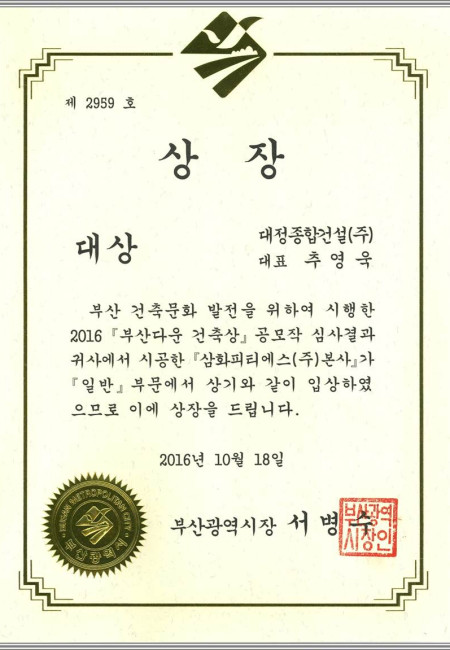 제 2959 호
상 장
대상
대정종합건설(주)
대표 추영욱
부산 건축문화 발전을 위하여 시행한
2016 『부산다운 건축상』 공모작 심사결과
귀사에서 시공한 『삼화피티에스(주)본사』가
『일반』 부문에서 상기와 같이 입상하였
으므로 이에 상장을 드립니다.
2016년 10월 18일
부산광역시장 서병수
부산광역
시장인
BUSAN METROPOLITAN CITY
부산광역시